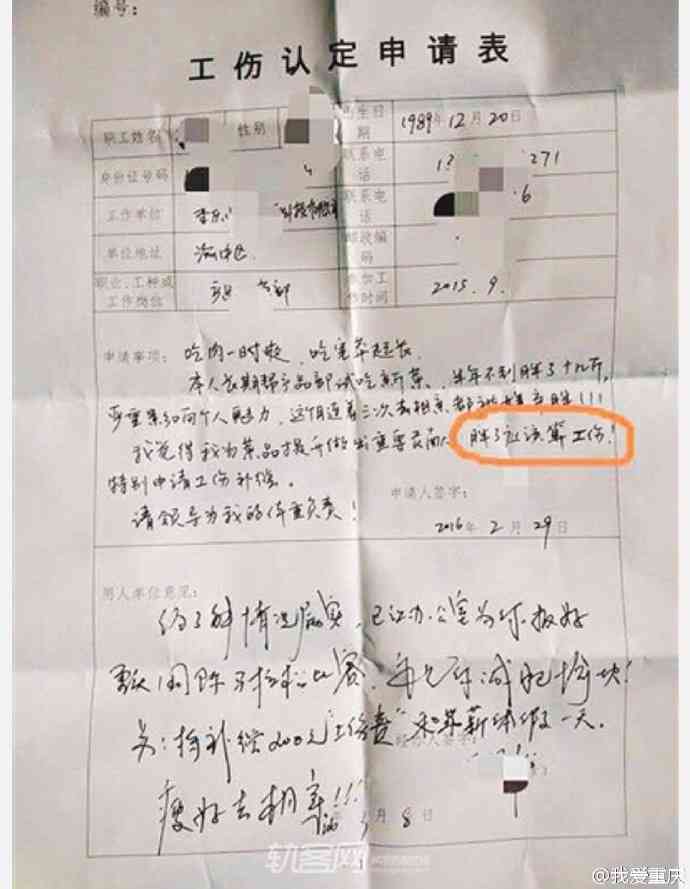 编号：
工伤认定申请表
职工姓名 性别 出生日期 1989年12月20日
身份证号码 联系电话 271
工作单位 联系电话 6
单位地址 渝中区 邮政编码
职业、工种或工作岗位 参加工作时间 2015.9.
申请事项：吃肉一时爽，吃完莽起长。
本人长期帮产品部试吃新菜，半年不到胖了十几斤，
严重影响个人魅力，这个月连着三次去相亲都说我太胖！！！
我觉得我为菜品提升做出重要贡献，胖了应该算工伤！
特别申请工伤补偿。
请领导为我的体重负责！
申请人签字：
2016年2月29日
用人单位意见：
经了解情况属实，已让办公室为你报好
重庆国际马拉松比赛，希望你减肥愉快！
另：特补偿200元"工伤费"和带薪休假一天。
经办人签字：
瘦好去相亲！！！
3月8日
轨客网
@我爱重庆